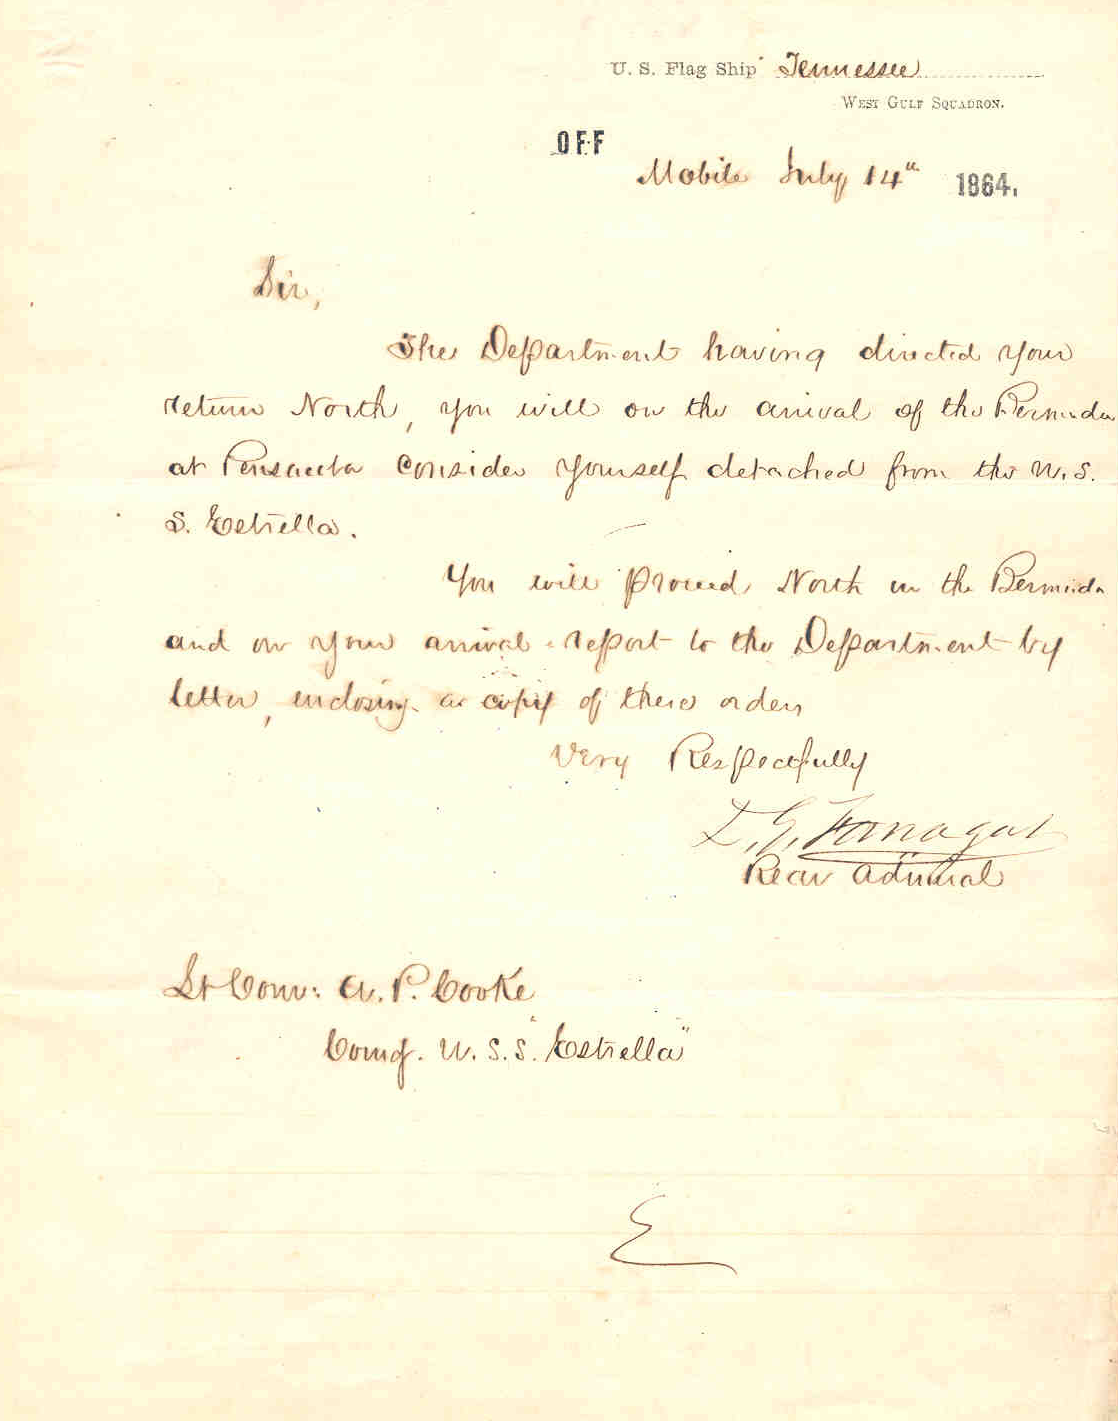 U. S. Flag Ship Tennessee
West Gulf Squadron.
OFF
Mobile July 14" 1864.
Sir,
The Department having directed your
return North, you will on the arrival of the Bermuda
at Pensacola consider yourself detached from the U. S.
S. Estrella.
You will proceed North in the Bermuda
and on your arrival report to the Department by
letter, enclosing a copy of these orders
Very Respectfully
D. G. Farragut
Rear Admiral
Lt Com: A. P. Cooke
Comg. U. S. S. "Estrella"
E